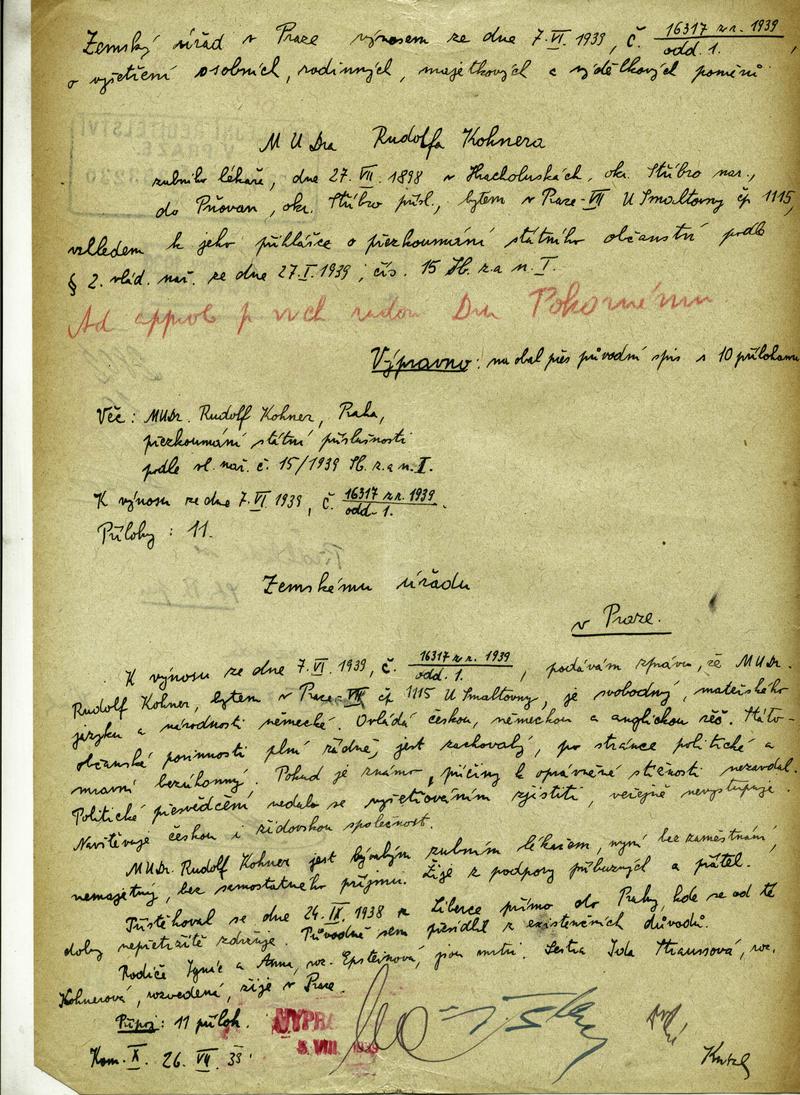 Zemský úřad v Praze výnosem ze dne 7.VI. 1939, č. 16317 z r. 1939 odd. 1.,
o vyšetření osobních, rodinných, majetkových a výdělkových poměrů
MUDra Rudolfa Kohnera
zubního lékaře, dne 27.VII.1898 v Hracholuskách, okr. Stříbro nar.,
do Pňovan, okr. Stříbro přísl., bytem v Praze-VII U Smaltovny čp 1115,
vzhledem k jeho přihlášce o přezkoumání státního občanství podle
§ 2. vlád. nař. ze dne 27.I.1939, čís. 15 Sb. z. a n. I.
Ad approb p vrch radou Dru Pokornému
Výpravno: na obal přes původní spis s 10 přílohami
Věc: MUDr. Rudolf Kohner, Praha,
přezkoumání státní příslušnosti
podle vl. nař. č. 15/1939 Sb. z. a n. I.
K výnosu ze dne 7.VI.1939, č. 16317 z r. 1939 odd. 1.
Přílohy: 11.
Zemskému úřadu
v Praze.
K výnosu ze dne 7.VI.1939, č. 16317 z r. 1939 odd. 1., podávám zprávu, že MUDr.
Rudolf Kohner, bytem v Praze-VII čp 1115 U Smaltovny, je svobodný, mateřského
jazyku a národnosti německé. Ovládá českou, německou a anglickou řeč. Státo-
občanské povinnosti plní řádně, jest zachovalý, po stránce politické a
mravní bezúhonný. Pokud je známo, příčiny k oprávněné stížnosti nezavdal.
Politické přesvědčení nedalo se vyšetřováním zjistiti, veřejně nevystupuje.
Navštěvuje českou i židovskou společnost.
MUDr. Rudolf Kohner jest bývalým zubním lékařem, nyní bez zaměstnání,
nemajetný, bez samostatného příjmu. Žije z podpory příbuzných a přátel.
Přistěhoval se dne 24.IX.1938 z Liberce přímo do Prahy, kde se od té
doby nepřetržitě zdržuje. Původně sem přesídlil z existenčních důvodů.
Rodiče Ignác a Anna, roz. Epsteinová, jsou mrtvi. Sestra Ida Straussová, roz.
Kohnerová, rozvedená, žije v Praze.
Připoj: 11 příloh.
VYPRA
5. VIII. 1939
Kom. X. 26.VII.39